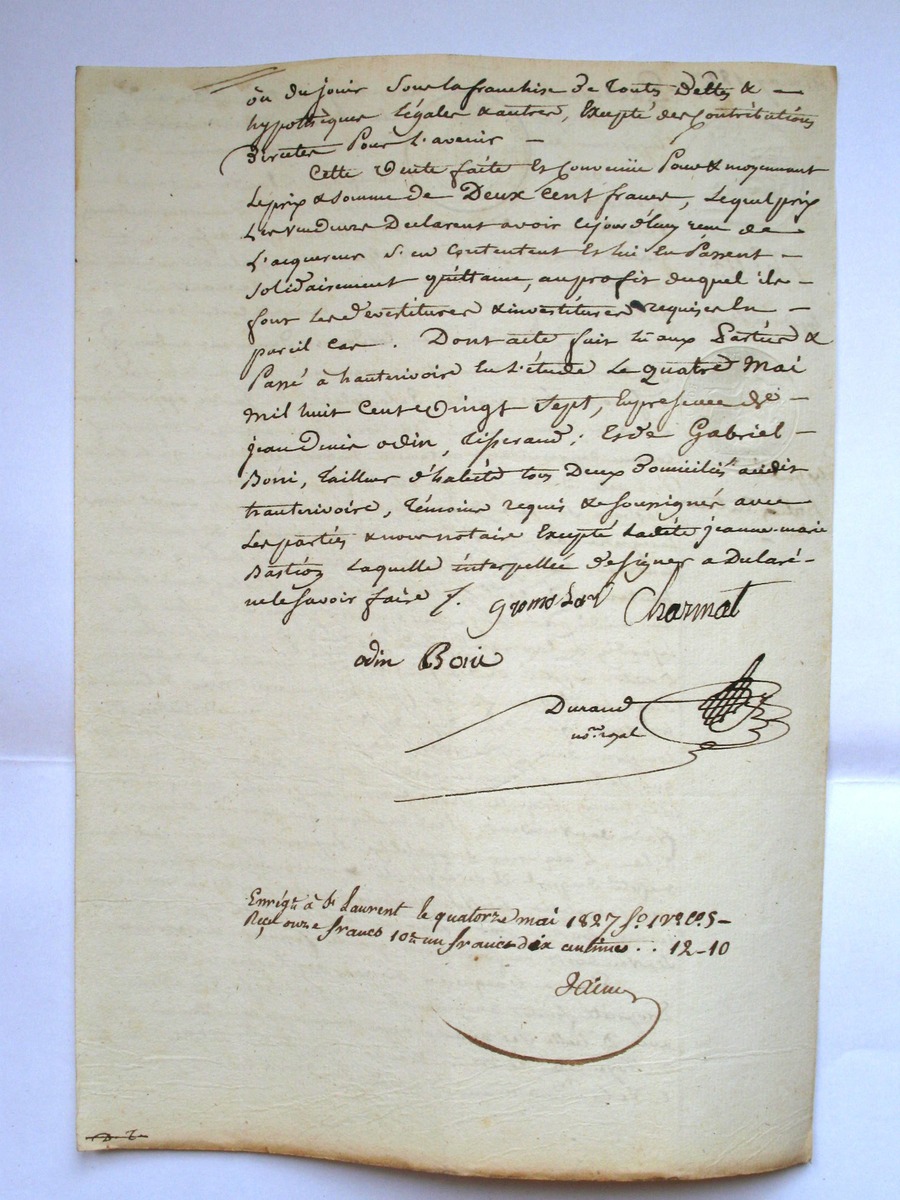 ou du jouir sous la franchise de toutes dettes &
hypothèques légales & autres, Excepté des contributions
directes Pour l'avenir
Cette Vente faite Et Convenüe Pour & moyennant
Le prix & somme de Deux Cent francs, Lequel prix
Les Vendeurs Declarent avoir cejourd'huy reçu de
L'acquereur s'en Contentent Et lui En Passent
Solidairement quittance, au profit duquel ils
font Les devestitures & investitures requises En
pareil cas. Dont acte fait lû aux Parties &
Passé à hauterivoire En L'étude Le quatre Mai
Mil huit Cent Vingt Sept, En presence de
jean Denis odin, Tisserand, Et de Gabriel
Borri, Tailleur d'habits tous Deux Domiciliés audit
hauterivoire, Témoins requis & soussignés avec
Les parties & nous notaire Excepté Ladite jeanne-marie
Bastion Laquelle interpellée de signer a Déclaré
ne le savoir faire /.
Charmat
odin Borri
Durand
no.re royal
Enrég.é à S.t Laurent le quatorze mai 1827 f.o 1 v.o c.e 5
Reçu onze francs 10.e un franc dix centimes .. 12-10